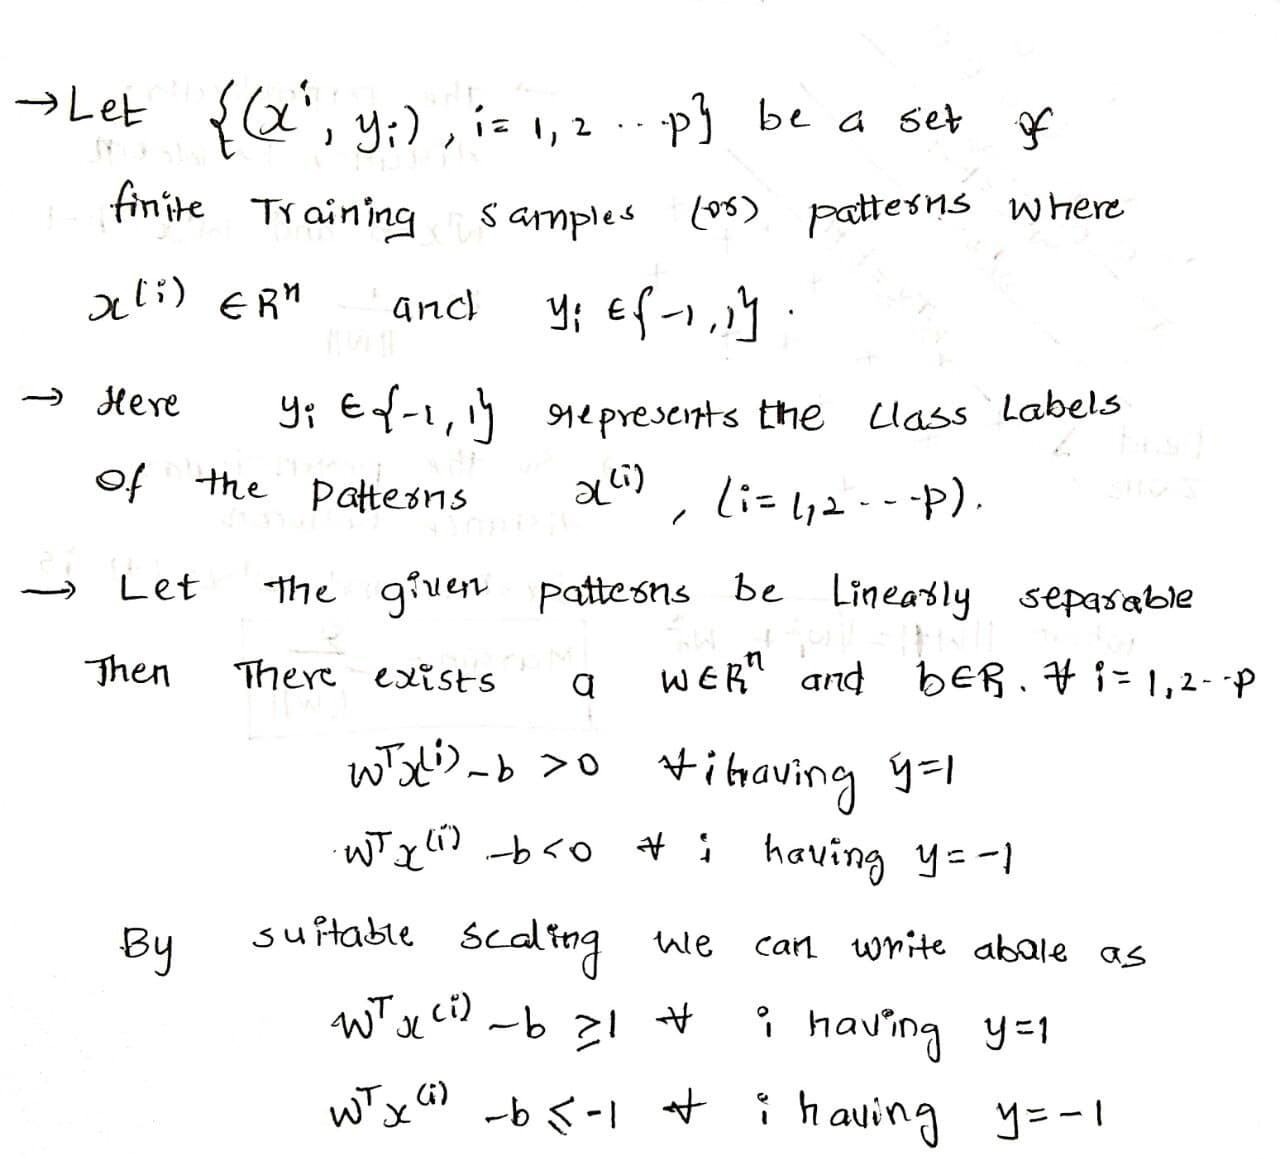 → Let {(x^i, y_i), i = 1, 2 ... p} be a set of
finite Training samples (or) patterns where
x^(i) ∈ R^n and y_i ∈ {-1, 1}.
→ Here y_i ∈ {-1, 1} represents the class Labels
of the patterns x^(i), (i = 1, 2 - - - p).
→ Let the given patterns be Linearly separable
Then There exists a w ∈ R^n and b ∈ R. ∀ i = 1, 2 - - p
w^T x^(i) - b > 0 ∀ i having y = 1
w^T x^(i) - b < 0 ∀ i having y = -1
By suitable scaling we can write abale as
w^T x^(i) - b ≥ 1 ∀ i having y = 1
w^T x^(i) - b ≤ -1 ∀ i having y = -1